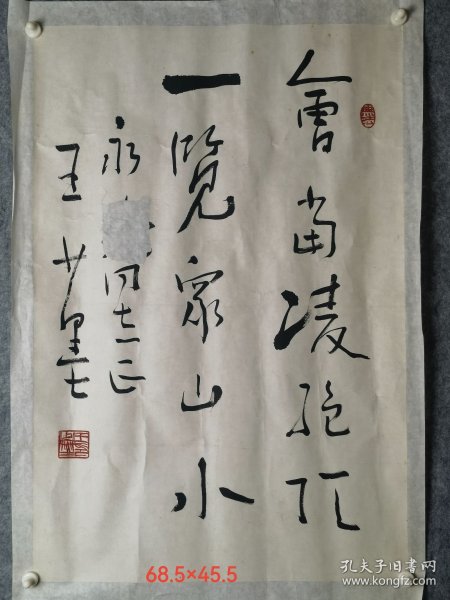 會當凌絕頂
一覽眾山小
永 同志正
王少墨
68.5×45.5
孔夫子旧书网
www.kongfz.com